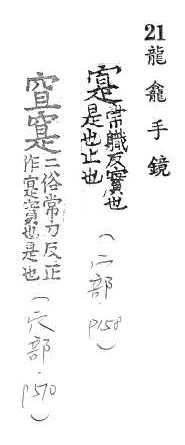 21龍龕手鏡
寔常職反實也
是也止也
(宀部.p158)
窅寔二俗常力反正
作寔實也是也
(穴部.p510)